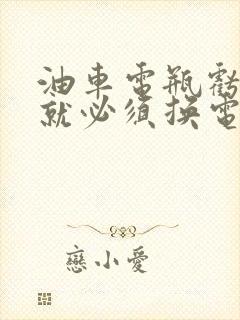 油車電瓶虧
就必須換電
戀小愛